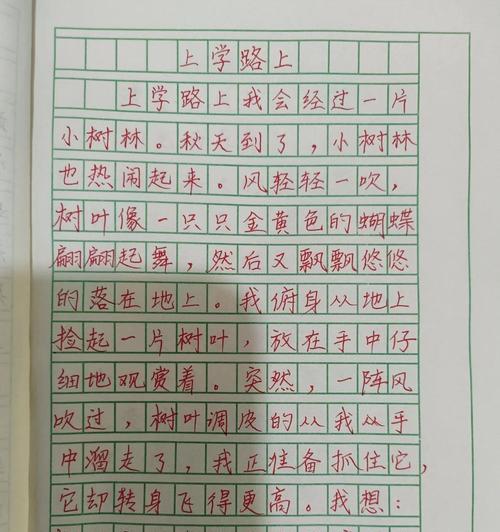 上学路上
上学路上我会经过一片
小树林。秋天到了，小树林
也热闹起来。风轻轻一吹，
树叶像一只只金黄色的蝴蝶
翩翩起舞，然后又飘飘悠悠
的落在地上。我俯身从地上
捡起一片树叶，放在手中仔
细地观赏着。突然，一阵风
吹过，树叶调皮的从我从手
中溜走了，我正准备抓住它，
它却转身飞得更高。我想：